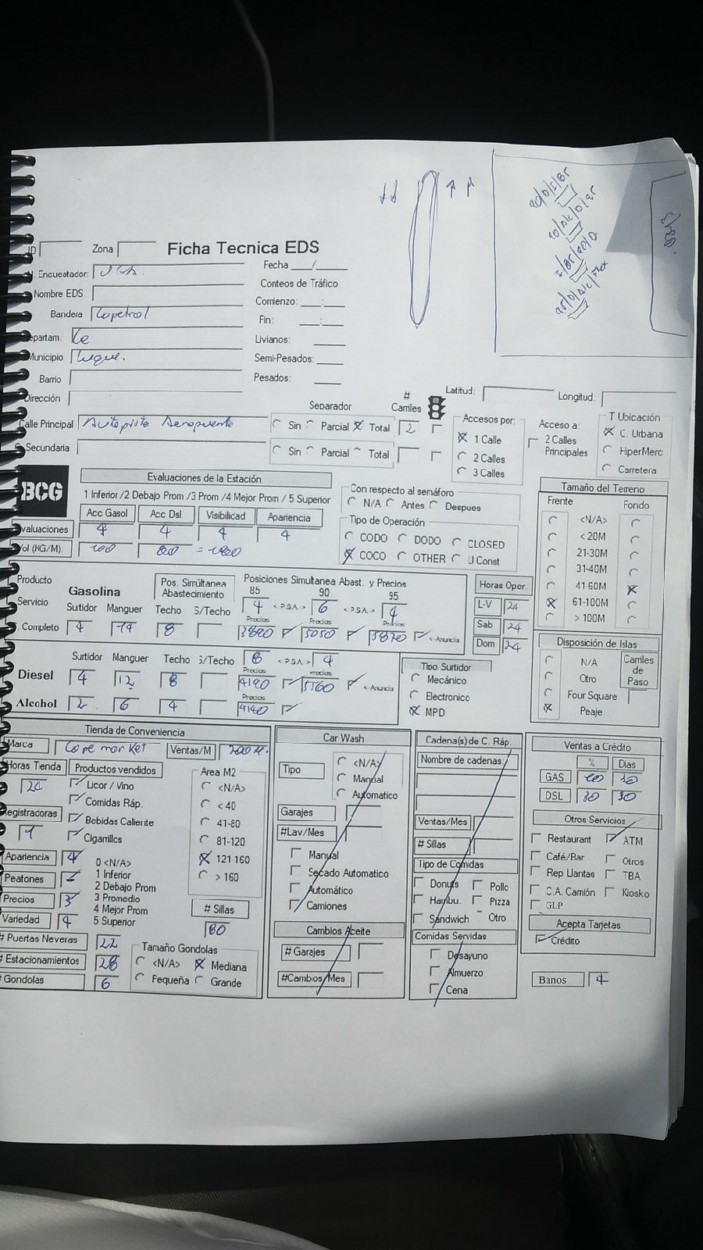 ID Zona Ficha Tecnica EDS
Fecha /
Encuestador:
Conteos de Tráfico
Nombre EDS
Comienzo: :
Bandera Copetrol
Fin: :
Departam.
Livianos:
Municipio Luque.
Semi-Pesados:
Barrio
Pesados:
Dirección
Latitud: Longitud:
Separador # Carriles
Calle Principal Autopista Aeropuerto Sin Parcial X Total 2
Secundaria Sin Parcial Total
Accesos por:
X 1 Calle
2 Calles
3 Calles
Acceso a:
2 Calles Principales
T Ubicación
X C. Urbana
HiperMerc
Carretera
BCG
Evaluaciones de la Estación
1 Inferior /2 Debajo Prom /3 Prom /4 Mejor Prom / 5 Superior
Acc Gasol Acc Dsl Visibilicad Apariencia
Evaluaciones 4 4 4 4
Vol (HG/M).
Con respecto al senáforo
N/A Antes Despues
Tipo de Operación
CODO DODO CLOSED
X COCO OTHER U Const
Tamaño del Terreno
Frente Fondo
<N/A>
< 20M
21-30M
31-40M
41-60M X
X 61-100M
> 100M
Producto
Servicio
Completo
Gasolina
Pos. Simúltanea Abastecimiento
Posiciones Simultanea Abast. y Precios
85 90 95
4 < P.S.A. > 6 < P.S.A. > 4
Surtidor Manguer Techo S/Techo
Precios Precios Precios
4 14 8 5050 < Anuncia
Horas Oper.
L-V 24
Sab 24
Dom 24
Surtidor Manguer Techo S/Techo
8 < P.S.A. > 4
Precios Precios
Diesel 4 12 8 4190 5560 < Anuncia
Precios
Alcohol 2 6 4 4140
Tipo Surtidor
Mecánico
Electronico
X MPD
Disposición de Islas
N/A
Otro
Four Square
X Peaje
Carriles de Paso
Tienda de Conveniencia
Marca Copemarket Ventas/M
Horas Tienda Productos vendidos
24
Licor / Vino
Comidas Ráp.
Bebidas Caliente
Cigarrillos
Registradoras
1
Area M2
<N/A>
< 40
41-80
81-120
X 121-160
> 160
Apariencia 4
Peatones
Precios 3
Variedad 4
0 <N/A>
1 Inferior
2 Debajo Prom
3 Promedio
4 Mejor Prom
5 Superior
# Sillas
80
# Puertas Neveras 22
# Estacionamientos 28
# Gondolas 6
Tamaño Gondolas
<N/A> X Mediana
Pequeña Grande
Car Wash
Tipo
<N/A>
Manual
Automatico
Garajes
#Lav/Mes
Manual
Secado Automatico
Automático
Camiones
Cambios Aceite
# Garajes
#Cambios/Mes
Cadena(s) de C. Ráp.
Nombre de cadenas:
Ventas/Mes
# Sillas
Tipo de Comidas
Donuts Pollo
Hambu. Pizza
Sandwich Otro
Comidas Servidas
Desayuno
Almuerzo
Cena
Ventas a Crédito
% Dias
GAS
DSL 30 30
Otros Servicios
Restaurant ATM
Café/Bar Otros
Rep Llantas TBA
C.A. Camión Kiosko
GLP
Acepta Tarjetas
Crédito
Banos 4